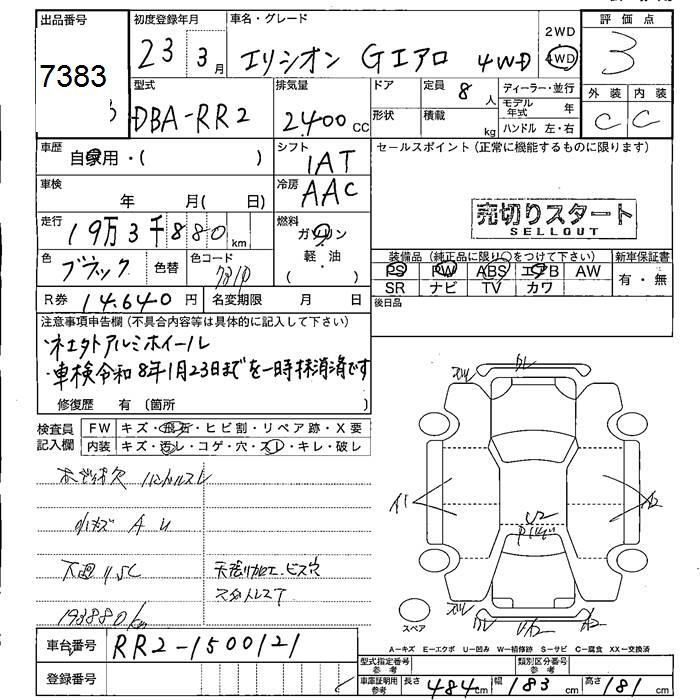 出品番号
7383
初度登録年月
23 3月
車名・グレード
エリシオン Gエアロ 4WD
2WD
4WD
評価点
3
外装 内装
C C
型式
DBA-RR2
排気量
2400cc
ドア
形状
定員 8人
積載 kg
ディーラー・並行
モデル年式 年
ハンドル 左・右
車歴
自家用・( )
シフト
IAT
車検
年 月( 日)
冷房
AAC
走行
19万3千880km
燃料
ガソリン
軽・油
( )
色
ブラック
色替
色コード
R券 14.640円
名変期限 月 日
セールスポイント(正常に機能するものに限ります)
売切りスタート
SELLOUT
装備品(純正品に限り○をつけて下さい)
新車保証書
PS PW ABS エアB AW
有・無
SR ナビ TV カワ
後日品
注意事項申告欄(不具合内容等は具体的に記入して下さい)
・車検令和8年1月23日までを一時抹消済です
修復歴 有(箇所 )
検査員
記入欄
FW キズ・飛石・ヒビ割・リペア跡・X要
内装 キズ・汚レ・コゲ・穴・スレ・キレ・破レ
ハンドルスレ
小キズ A U
193880km
A2
U2
スペア
A-キズ E-エクボ U-凹み W-補修跡 S-サビ C-腐食 XX-交換済
車台番号 RR2-1500121
登録番号
型式指定番号
参考
類別区分番号
参考
車庫証明用
参考
長さ 484cm 幅 183cm 高さ 181cm